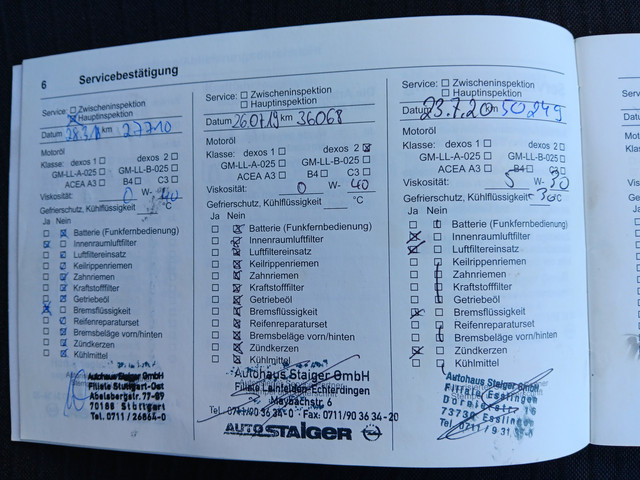 6 Servicebestätigung
Service: ☐ Zwischeninspektion
☒ Hauptinspektion
Datum 28.3.1 km 27710
Motoröl
Klasse: dexos 1 ☐ dexos 2 ☐
GM-LL-A-025 ☐ GM-LL-B-025 ☐
ACEA A3 ☐ B4 ☐ C3 ☐
Viskosität: 0 W- 40
Gefrierschutz, Kühlflüssigkeit °C
Ja Nein
☐ ☒ Batterie (Funkfernbedienung)
☒ ☐ Innenraumluftfilter
☐ ☒ Luftfiltereinsatz
☐ ☒ Keilrippenriemen
☐ ☒ Zahnriemen
☐ ☒ Kraftstofffilter
☐ ☒ Getriebeöl
☒ ☐ Bremsflüssigkeit
☐ ☒ Reifenreparaturset
☐ ☒ Bremsbeläge vorn/hinten
☐ ☒ Zündkerzen
☐ ☒ Kühlmittel
Autohaus Staiger GmbH
Filiale Stuttgart-Ost
70188 Stuttgart
Service: ☐ Zwischeninspektion
☐ Hauptinspektion
Datum 26.07.19 km 36068
Motoröl
Klasse: dexos 1 ☐ dexos 2 ☒
GM-LL-A-025 ☐ GM-LL-B-025 ☐
ACEA A3 ☐ B4 ☐ C3 ☐
Viskosität: 0 W- 40
Gefrierschutz, Kühlflüssigkeit °C
Ja Nein
☐ ☒ Batterie (Funkfernbedienung)
☐ ☒ Innenraumluftfilter
☐ ☒ Luftfiltereinsatz
☐ ☒ Keilrippenriemen
☐ ☒ Zahnriemen
☐ ☒ Kraftstofffilter
☐ ☒ Getriebeöl
☐ ☒ Bremsflüssigkeit
☐ ☒ Reifenreparaturset
☐ ☒ Bremsbeläge vorn/hinten
☐ ☒ Zündkerzen
☐ ☒ Kühlmittel
Autohaus Staiger GmbH
Filiale Leinfelden-Echterdingen
Maybachstr. 6
Tel. 0711/90 36 34-0 · Fax: 0711/90 36 34-20
AUTO STAIGER
Service: ☐ Zwischeninspektion
☐ Hauptinspektion
Datum 23.7.20 km 50249
Motoröl
Klasse: dexos 1 ☐ dexos 2 ☐
GM-LL-A-025 ☐ GM-LL-B-025 ☐
ACEA A3 ☐ B4 ☐ C3 ☐
Viskosität: 5 W- 30
Gefrierschutz, Kühlflüssigkeit 30 °C
Ja Nein
☐ ☐ Batterie (Funkfernbedienung)
☒ ☐ Innenraumluftfilter
☒ ☐ Luftfiltereinsatz
☐ ☐ Keilrippenriemen
☐ ☐ Zahnriemen
☐ ☐ Kraftstofffilter
☐ ☐ Getriebeöl
☒ ☐ Bremsflüssigkeit
☐ ☐ Reifenreparaturset
☐ ☐ Bremsbeläge vorn/hinten
☒ ☐ Zündkerzen
☐ ☐ Kühlmittel
Autohaus Staiger GmbH
Filiale Esslingen
73730 Esslingen